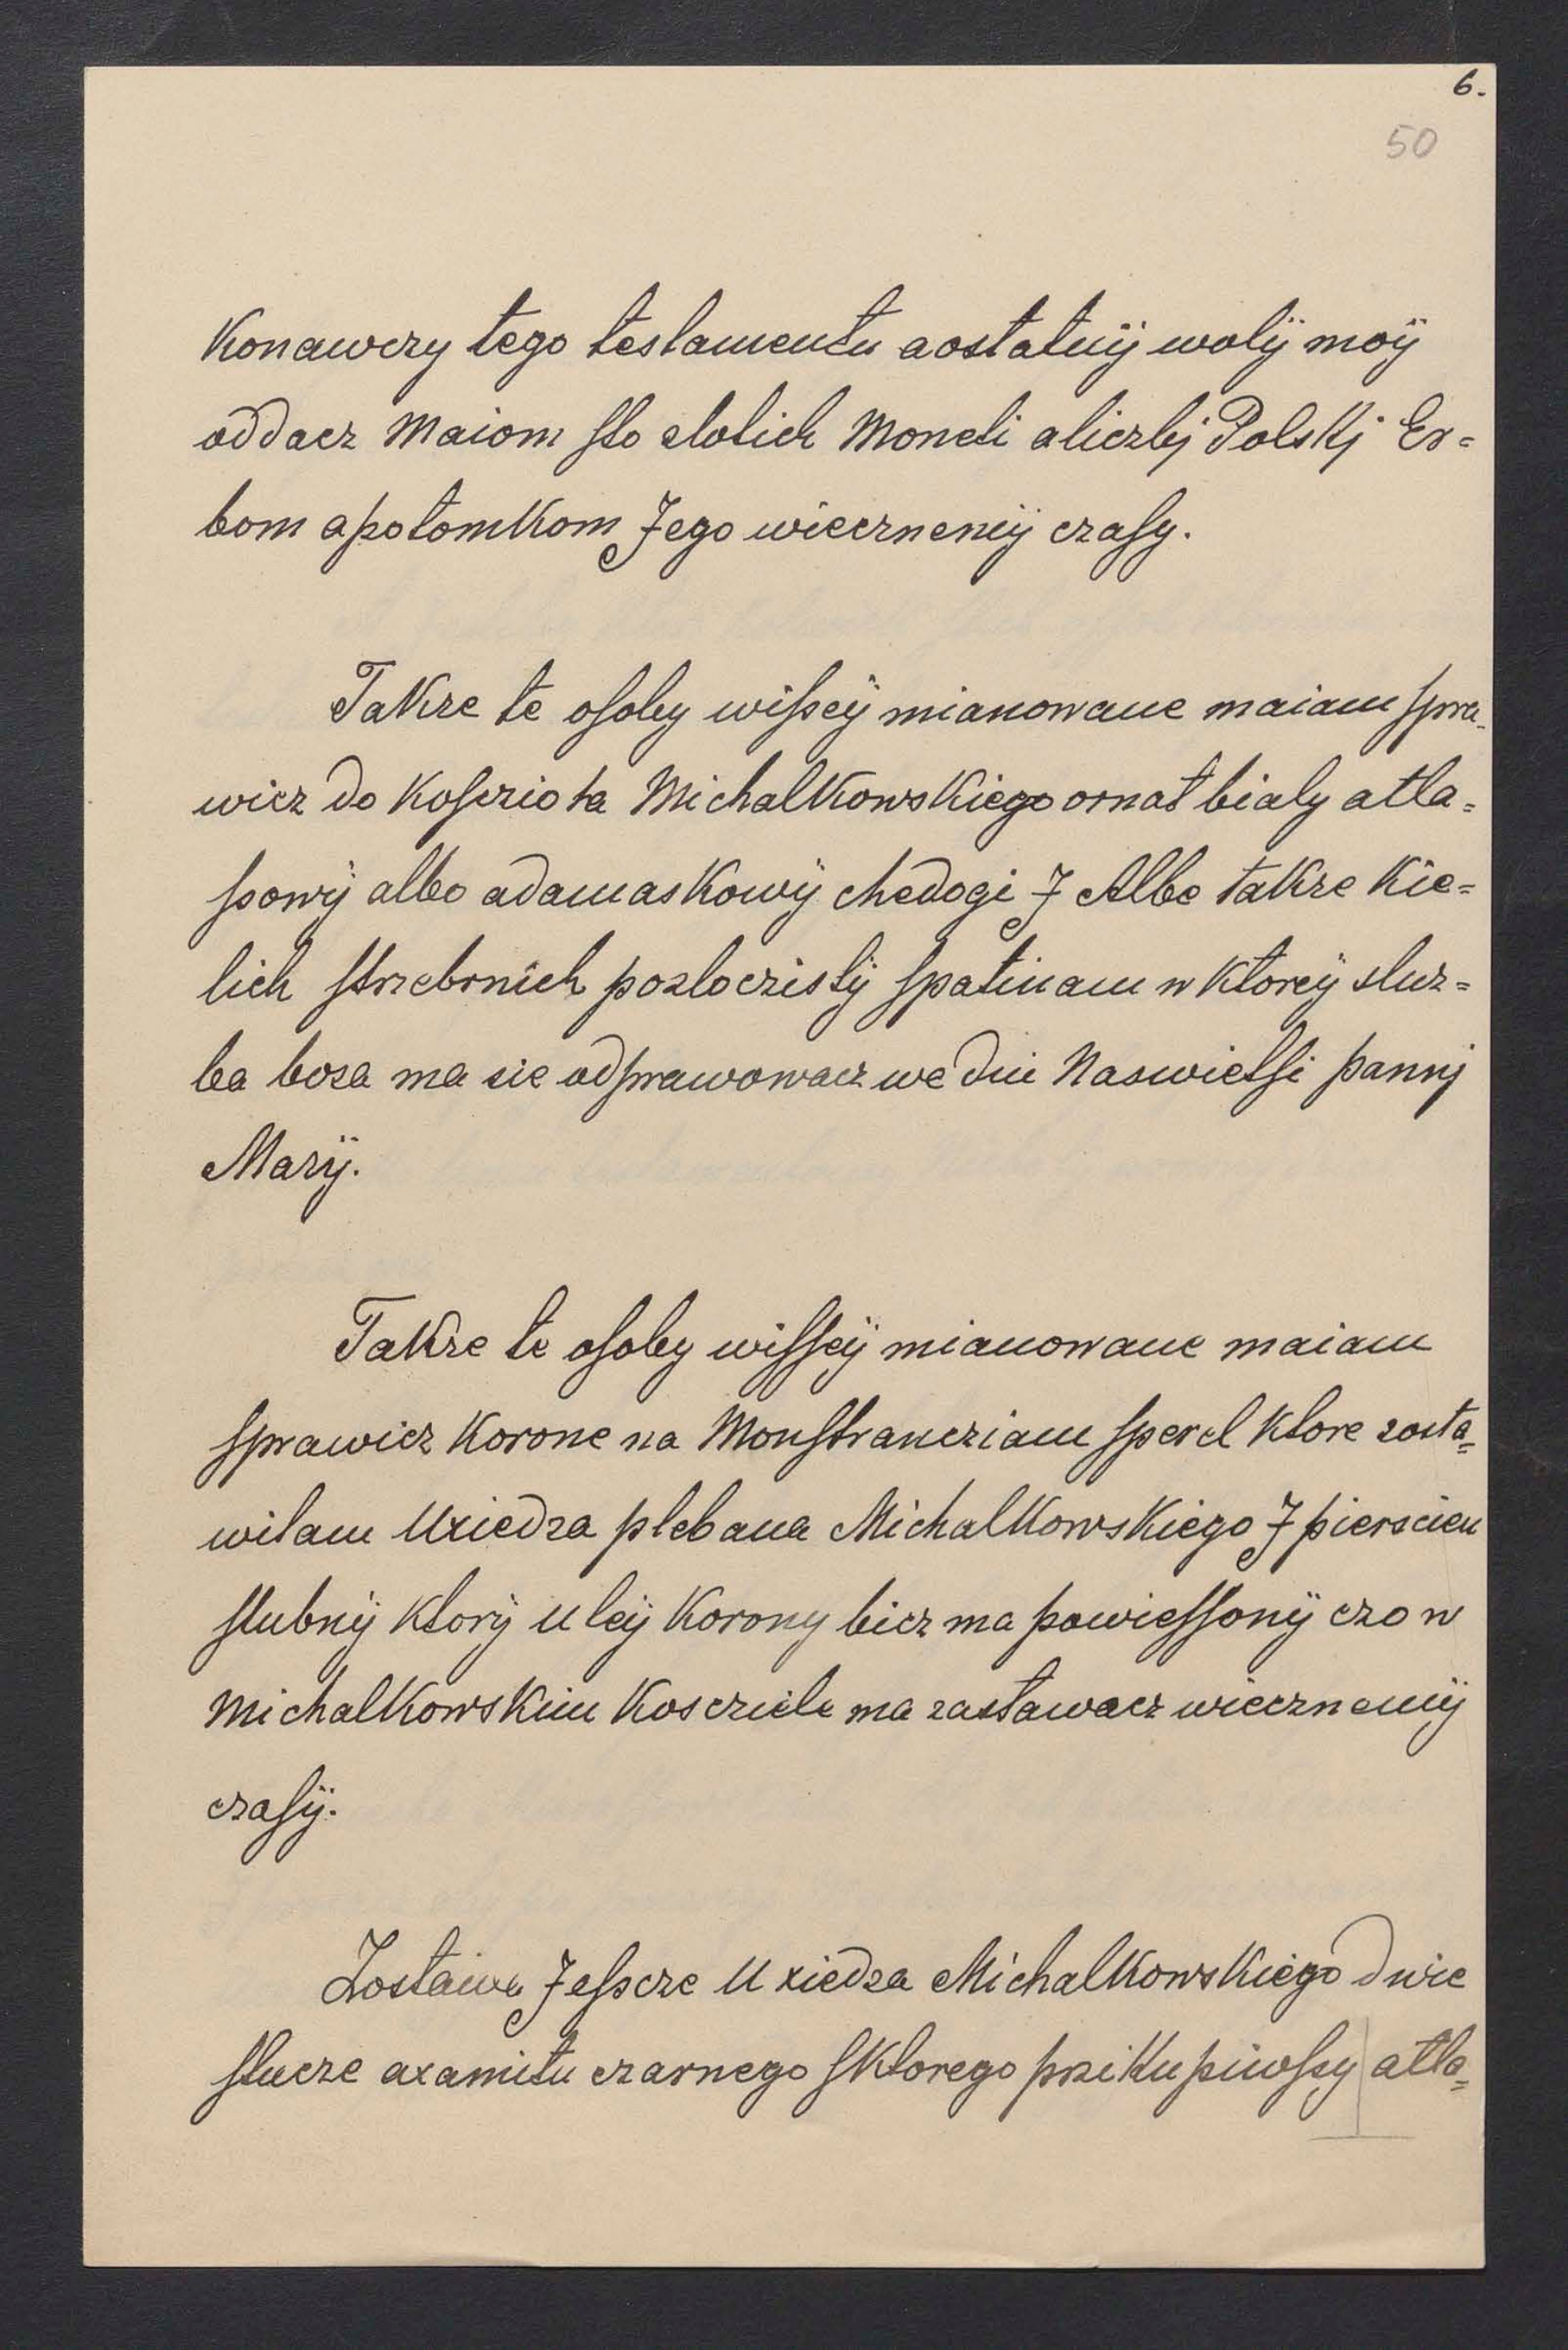 6.
50
Konawczy tego testamentu aostatnÿ wolÿ moÿ
oddacz Maiom sto slotich Moneti aliczbj Polskj Er=
bom apotomkom Jego wiecznemÿ czasy.
Takze te osoby wissèÿ mianowane maiam spra=
wicz do Koscziola Michalkowskiego ornat bialy atla=
ssowÿ albo adamaskowÿ chedogi J Albe takze Kie=
lich strzebrnich pozloczistÿ spatinam w ktoreÿ sluz=
ba boza ma sie odprawowacz we dni Naswietsi pannj
Marÿ.
Takze te osoby wisseÿ mianowane maiam
sprawicz Korone na Monstrancziam sperel ktore zosta=
wilam Uxiedza plebana Michalkowskiego J pierscien
slubnÿ ktorÿ u teÿ Korony bicz ma powiessonÿ czo w
Michalkowskim Koscziele ma zastawacz wiecznemÿ
czasÿ.
Zostaiwa Jesscze U xiedza Michalkowskiego dwie
stucze axamitu czarnego sktorego przikupiwssy atla=